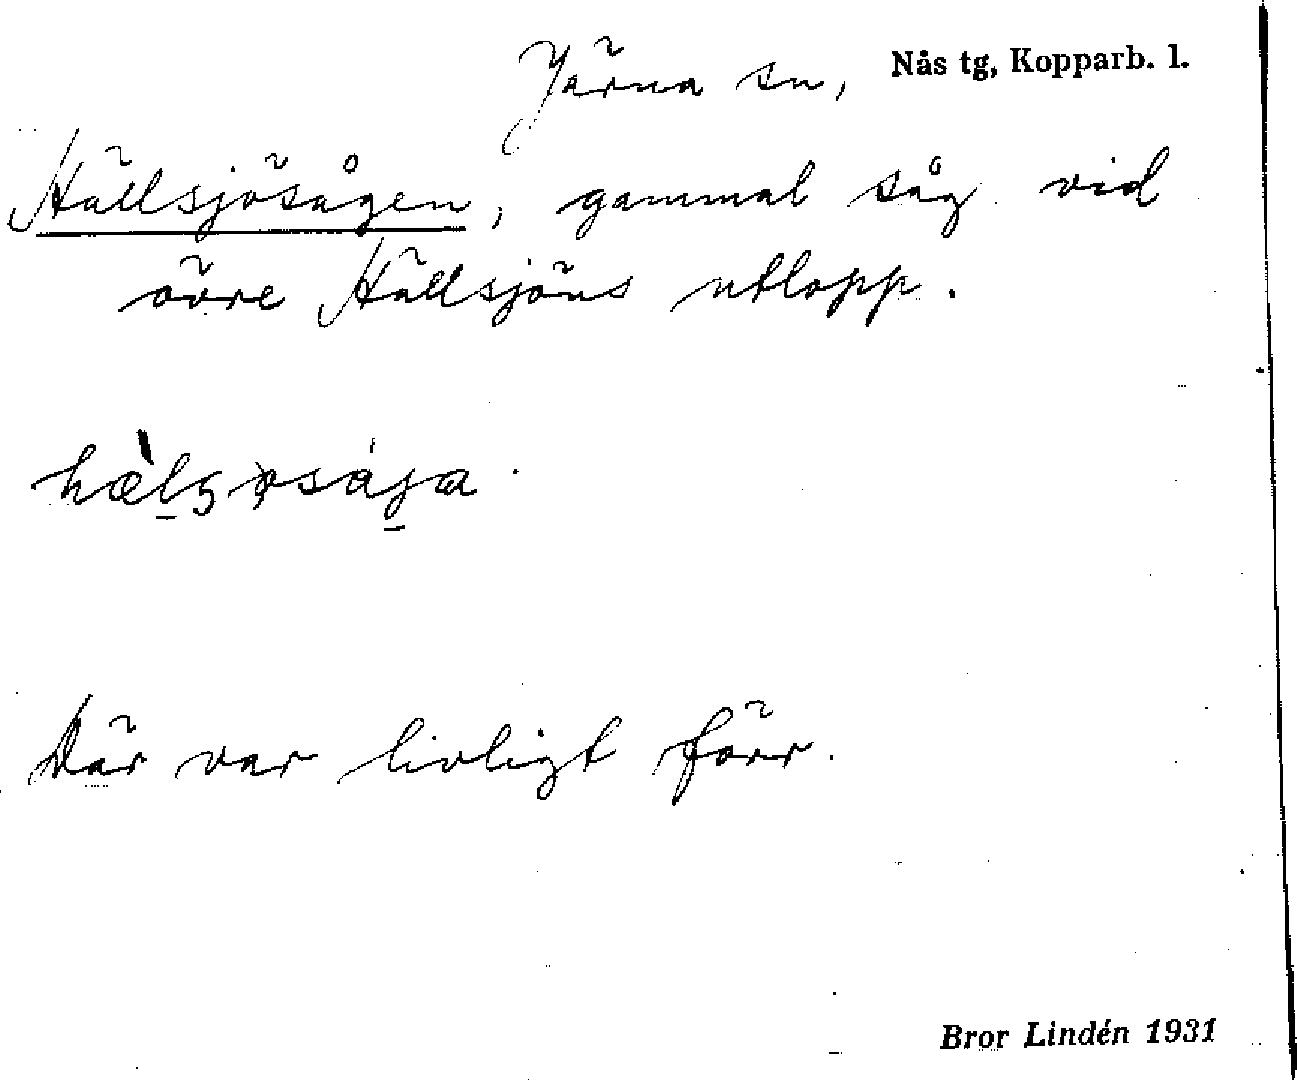 Järna sn, Nås tg, Kopparb. l.
Hällsjösågen, gammal såg vid
övre Hällsjöns utlopp.
Där var livligt förr.
Bror Lindén 1931